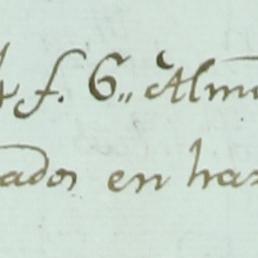 4 f. 6,, Alm
ados en has